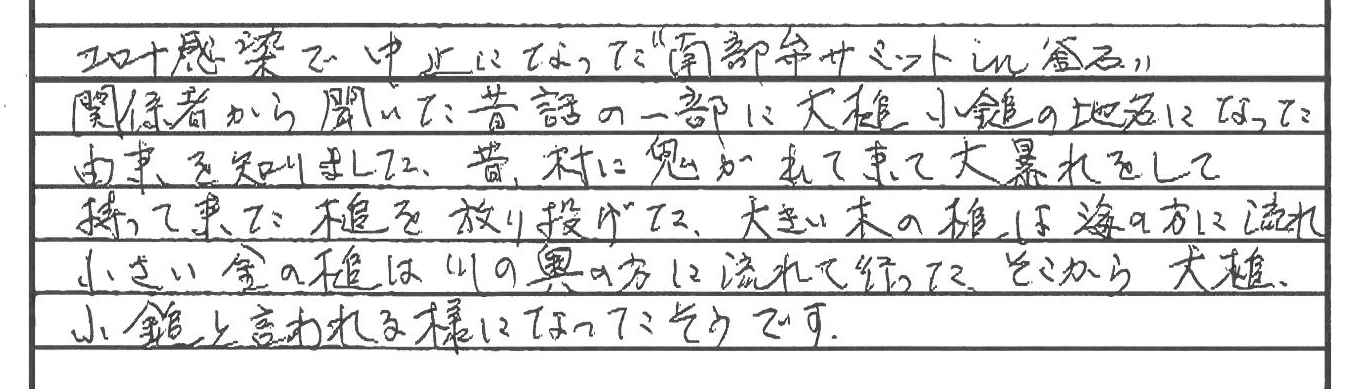 コロナ感染で中止になった“南部弁サミットin釜石”
関係者から聞いた昔話の一部に大槌小鎚の地名になった
由来を知りました、昔、村に鬼がれて来て大暴れをして
持って来た槌を放り投げた、大きい木の槌は海の方に流れ
小さい金の槌は川の奥の方に流れて行った、そこから大槌、
小鎚と言われる様になったそうです.